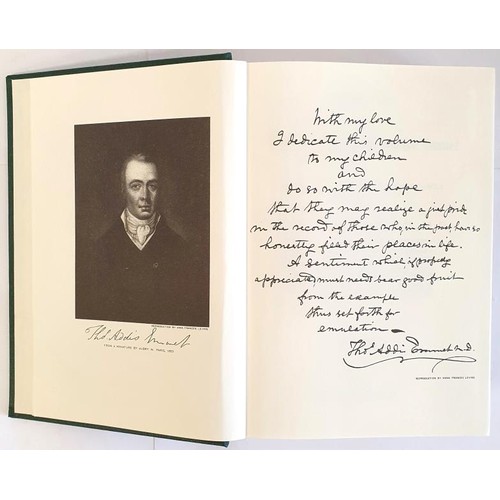 Thos Addis Emmet
With my love
I dedicate this volume
to my children
and
do so with the hope
that they may realize a just pride
in the record of those who, in the past, have so
honestly filled their places in life.
A sentiment which, if properly
appreciated, must needs bear good fruit
from the example
thus set forth for
emulation—
Thos Addis Emmet M.D.